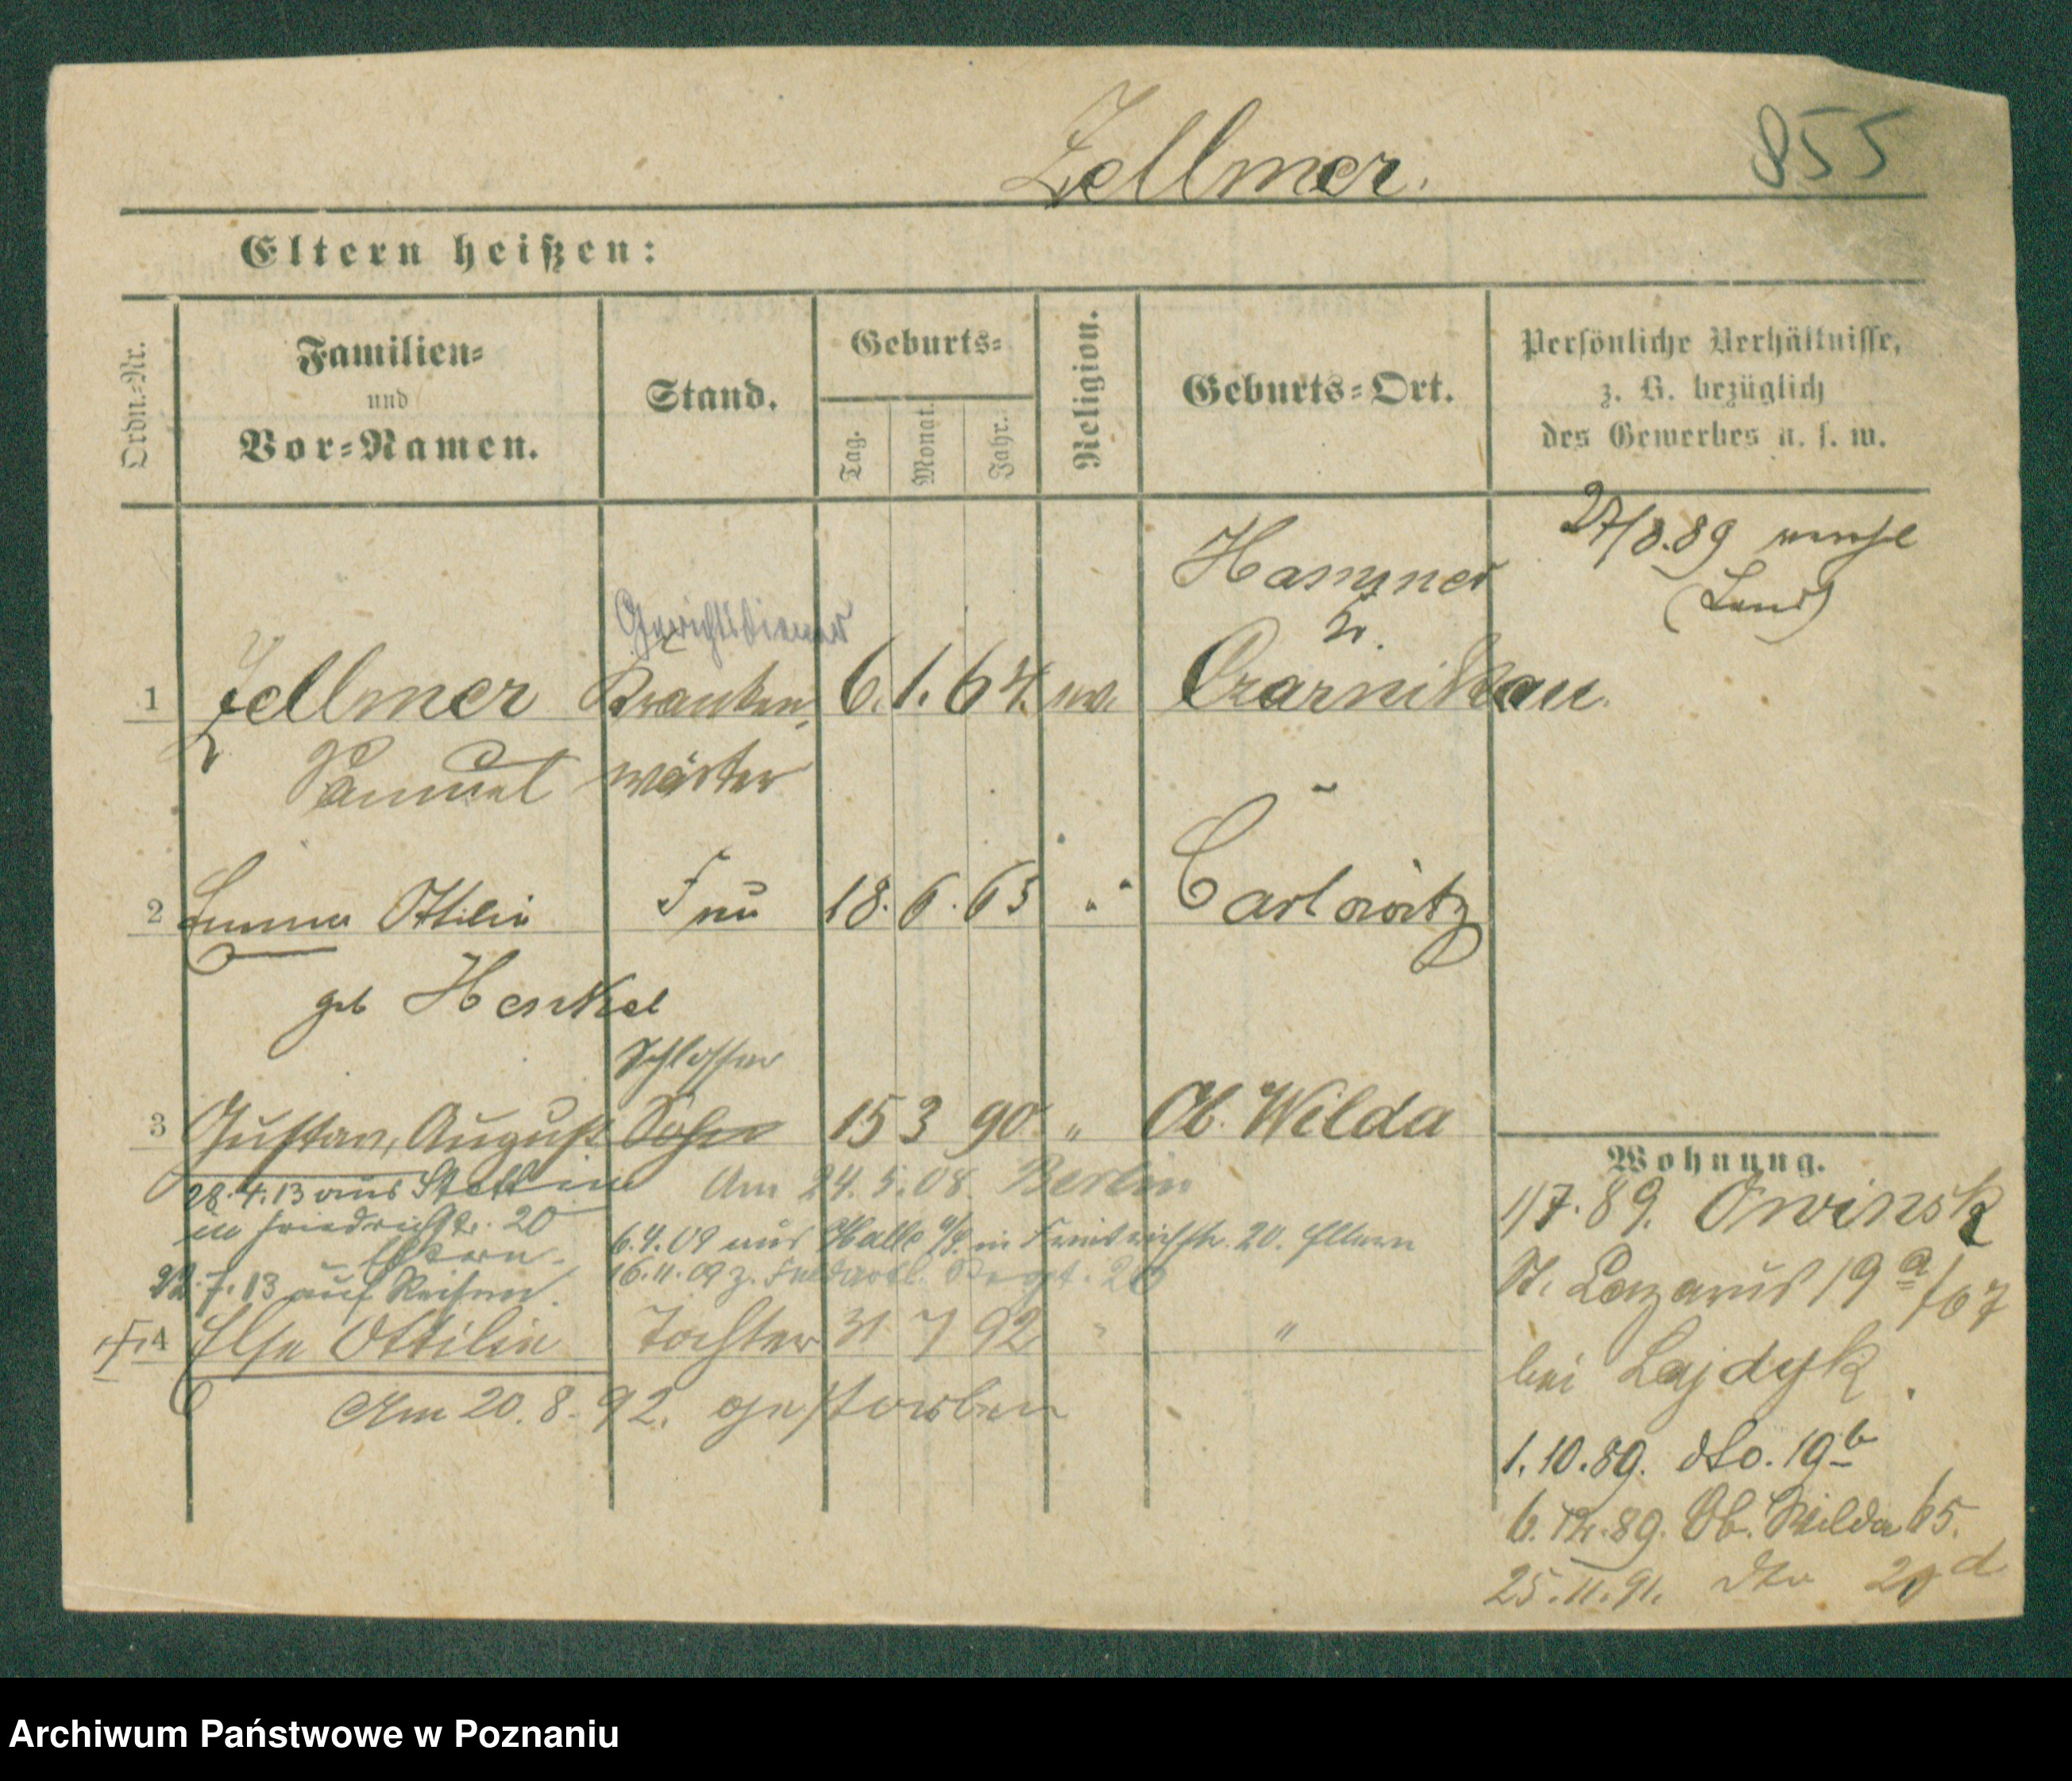 Zellmer.
855
Eltern heißen:
Ordn.-Nr.
Familien-
und
Vor-Namen.
Stand.
Geburts-
Tag.
Monat.
Jahr.
Religion.
Geburts-Ort.
Persönliche Verhältnisse,
z. B. bezüglich
des Gewerbes u. s. w.
27/8.89
(Land)
Hammer
Gerichtsdiener
1 Zellmer Kranken 6. 1. 64. ev. Czarnikau.
Samuel wärter
2 Emma Ottilie Frau 18. 6. 65 " Carlowitz
geb Henkel
Schlosser
3 Gustav, August Sohn 15 3 90 " Ob. Wilda
28.4.13 aus Stettin Am 24.5.08. Berlin
in Friedrichstr. 20
Eltern.
6.4.09 aus Halle in Friedrichstr. 20. Eltern
22.7.13 auf Reisen.
16.11.09 z. Regt. 20
4 Else Ottilie Tochter 31 7 92 " "
Am 20.8.92. gestorben
Wohnung.
1/7.89. Owinsk
St. Lazarus 19a/67
bei Lajdyk.
1.10.89. dto. 19b
6.12.89. Ob. Wilda 65.
25.11.91. dto 20d
Archiwum Państwowe w Poznaniu